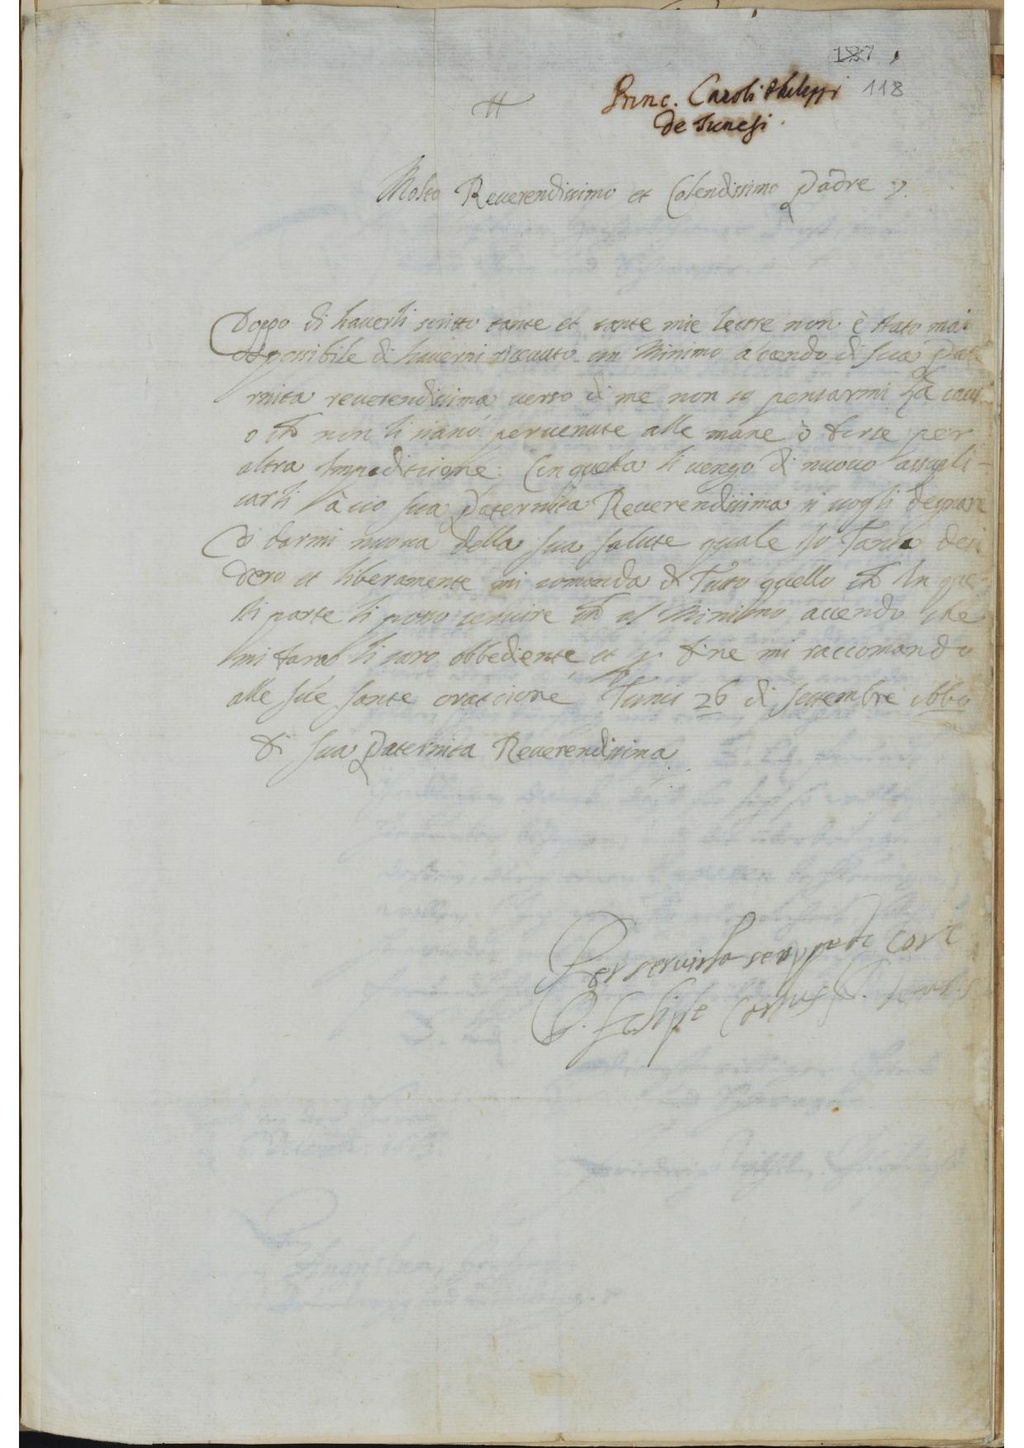 127
118
Princ. Caroli Philippi
de Tunesi.
Molto Reverendissimo et Colendissimo Padre
Doppo di haverli scritto tante et tante mie lettre non è stato mai
possibile di haverni riceauto un Minimo a cando di sua Pate
rnita reverendissima verso di me non so pensarmi la caus
o che non li siano pervenute alle mane ò forse per
altra Impeditione. Con questa li vengo di nuovo a suppli-
carli àcio sua Paternita Reverendissima si vogli degnare
darmi nuova della sua salute quale Io Tanto desi
dero et liberamente mi comanda di Tuto quello che In que-
sti parte li posso servire che al Minimo avendo che
mi fara li saro obbediente et per fine mi raccomando
alle sue sante oratcione Tunis 26 di settembre 1660
di sua Paternita Reverendissima
Per servirla sempre di core
D. Felipe